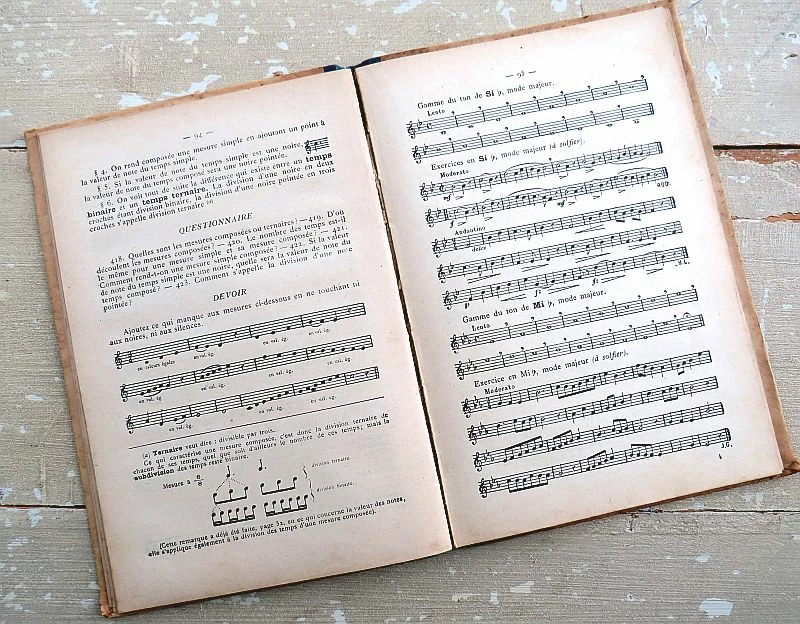 — 94 —
§ 4. On rend composée une mesure simple en ajoutant un point à
la valeur de note du temps simple.
§ 5. Si la valeur de note du temps simple est une noire,
la valeur de note du temps composé sera une noire pointée.
§ 6. On voit tout de suite la différence qui existe entre un temps
binaire et un temps ternaire. La division d'une noire en deux
croches étant division binaire, la division d'une noire pointée en trois
croches s'appelle division ternaire
QUESTIONNAIRE
418. Quelles sont les mesures composées ou ternaires? — 419. D'où
découlent les mesures composées? — 420. Le nombre des temps est-il
le même pour une mesure simple et sa mesure composée? — 421.
Comment rend-t-on une mesure simple composée? — 422. Si la valeur
de note du temps simple est une noire, quelle sera la valeur de note du
temps composé? — 423. Comment s'appelle la division d'une noire
pointée?
DEVOIR
Ajoutez ce qui manque aux mesures ci-dessous en ne touchant ni
aux noires, ni aux silences.
en valeurs égales en val. ég. en val. ég.
en val. ég. en val. ég. en val. ég.
en val. ég. en val. ég.
(a) Ternaire veut dire : divisible par trois.
Ce qui caractérise une mesure composée, c'est donc la division ternaire de
chacun de ses temps, quel que soit d'ailleurs le nombre de ces temps; mais la
subdivision des temps reste binaire.
Mesure à 6/8
division ternaire.
division binaire.
(Cette remarque a déjà été faite, page 52, en ce qui concerne la valeur des notes,
elle s'applique également à la division des temps d'une mesure composée).
— 95 —
Gamme du ton de Si ♭, mode majeur.
Lento
Exercices en Si ♭, mode majeur (à solfier).
Moderato
mf
f
Andantino
dolce
p
Gamme du ton de Mi ♭, mode majeur.
Lento
Exercice en Mi ♭, mode majeur (à solfier).
Moderato